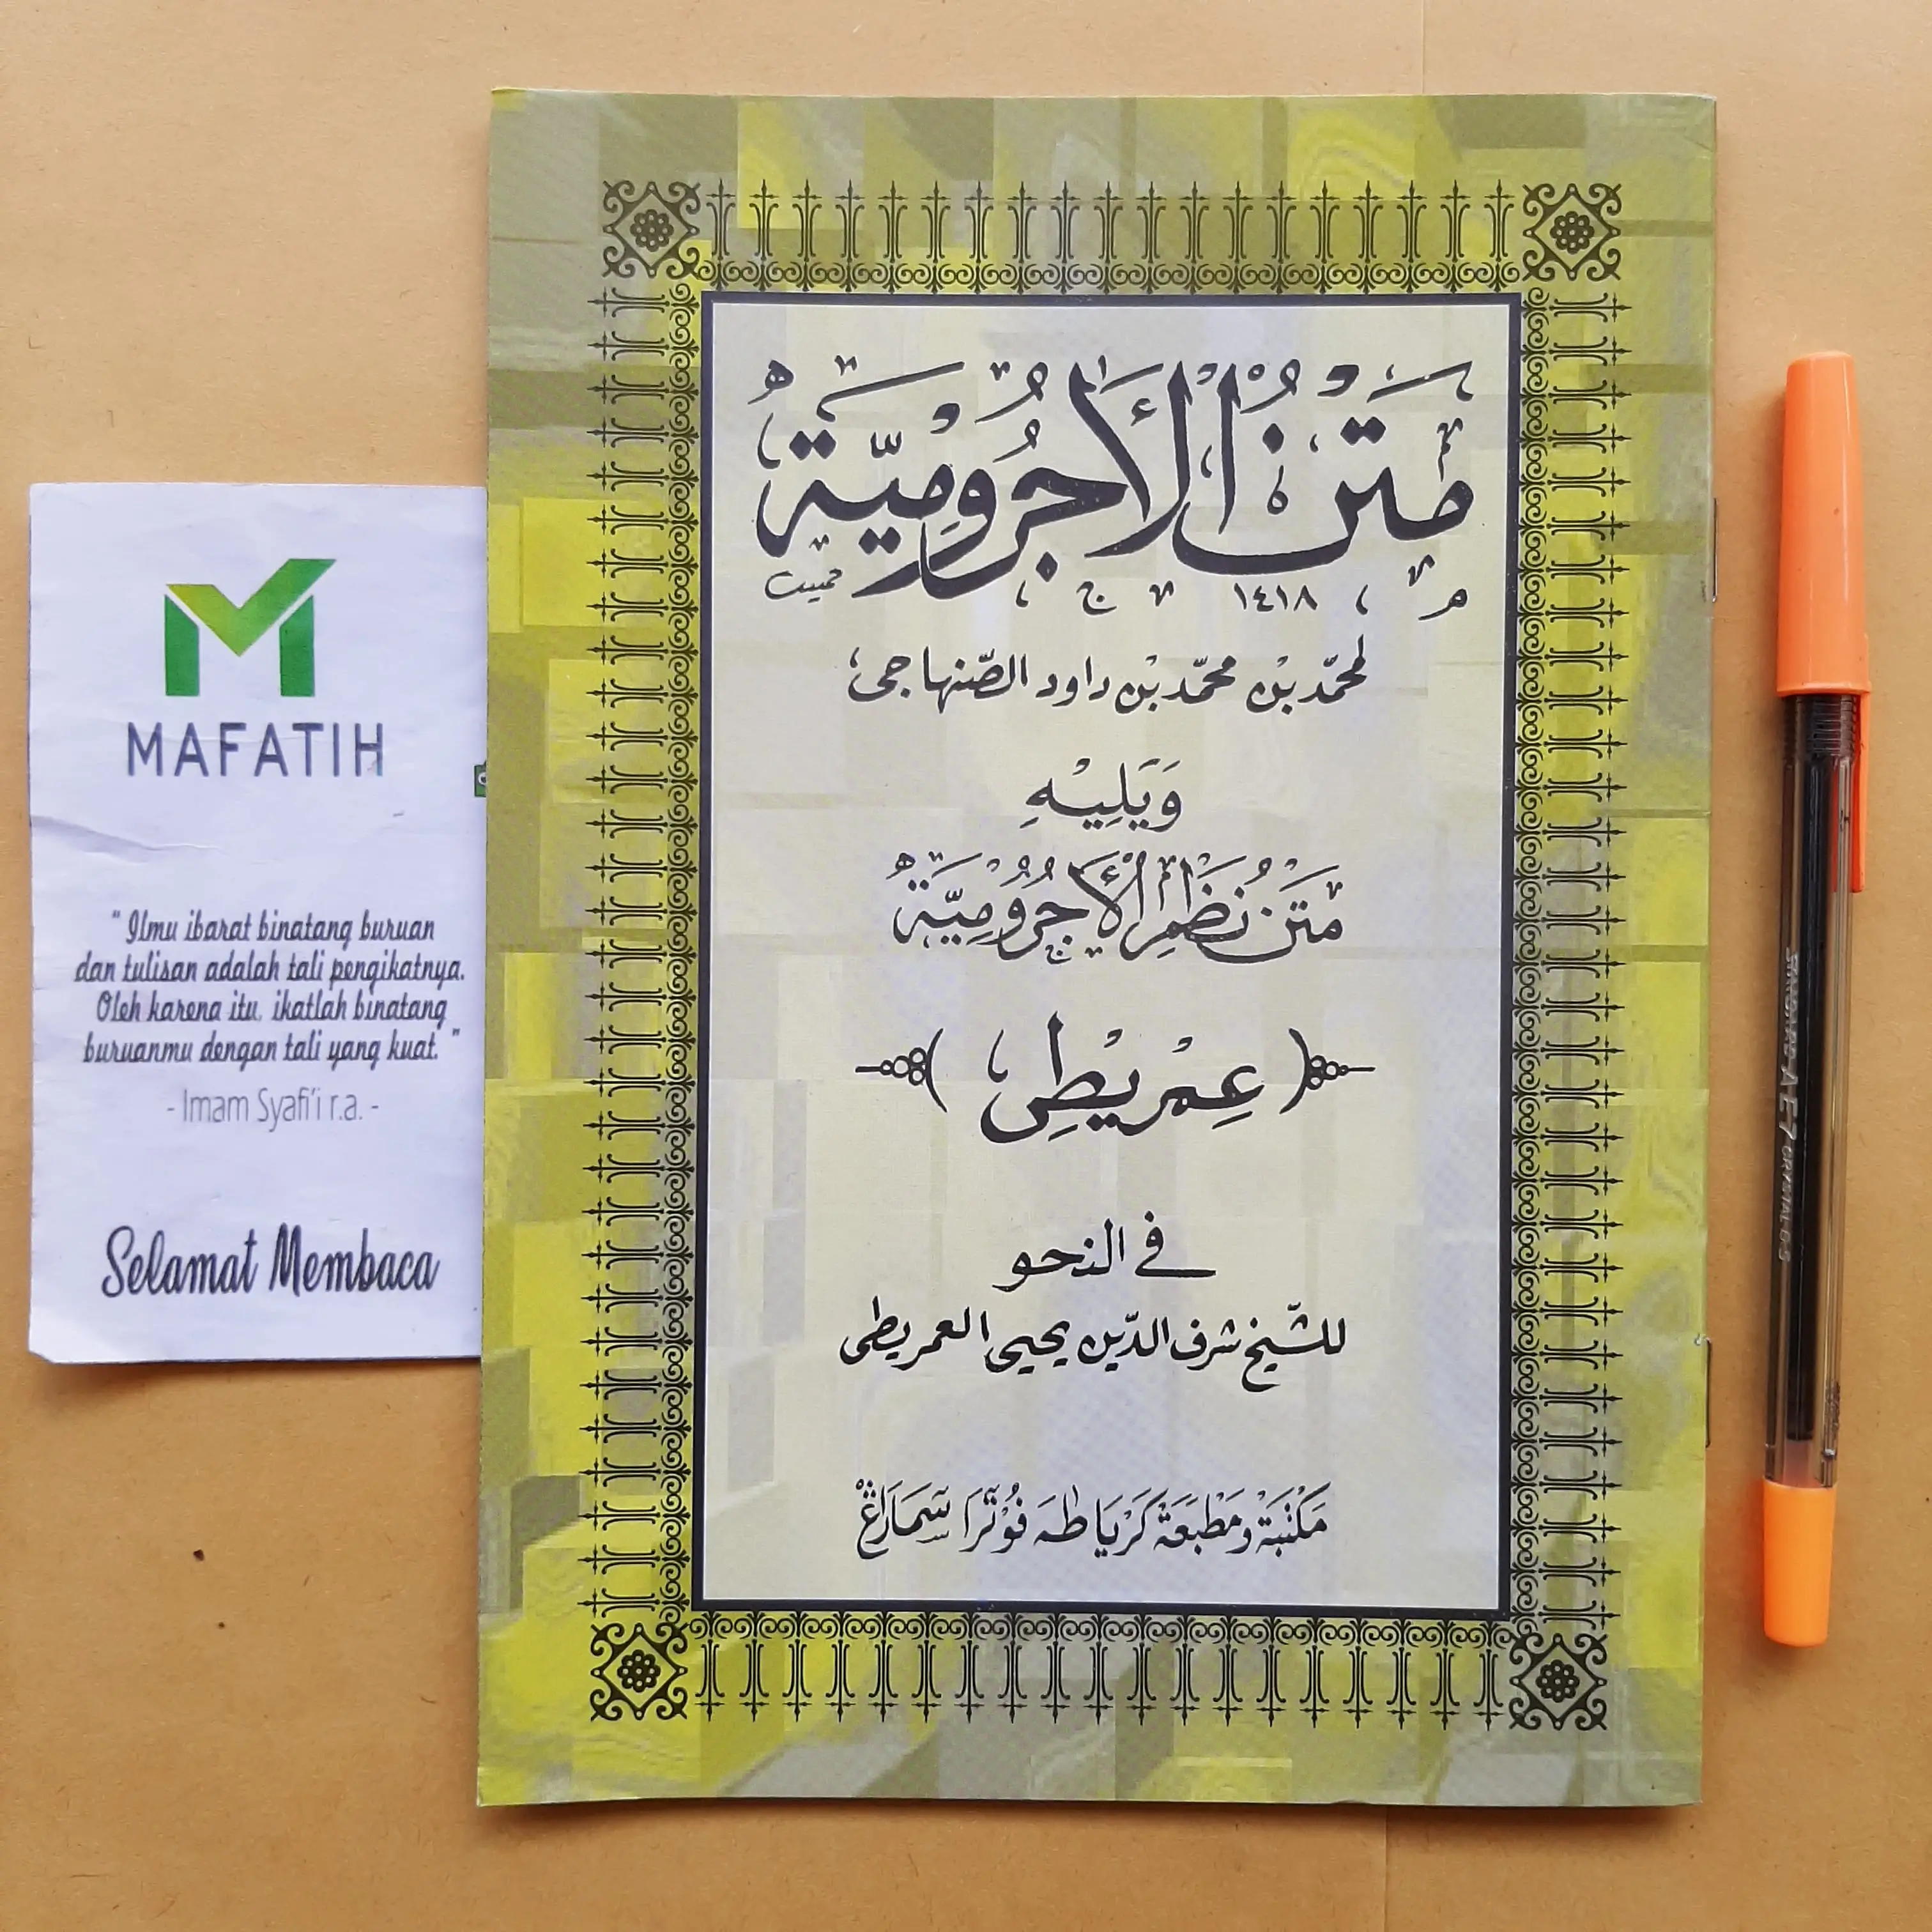 MAFATIH
" Ilmu ibarat binatang buruan
dan tulisan adalah tali pengikatnya.
Oleh karena itu, ikatlah binatang
buruanmu dengan tali yang kuat. "
- Imam Syafi'i r.a. -
Selamat Membaca
مَتْنُ الْأَجُرُوْمِيَّةِ
١٤١٨
لمحمّد بْن محمّد بْن داود الصّنهاجى
وَيَلِيْهِ
مَتَن نُظْمِ الْأَجُرُوْمِيَّةِ
(عِمْرِيْطِى)
فى النحو
للشّيخ شرف الدّين يحيى العمريطى
مَكْتَبَةْ وَمَطْبَعَةْ كَرْيَا طٰهَ فُوْتْرَا سَمَارَاڠْ
A-E7
CRYSTAL 0.5